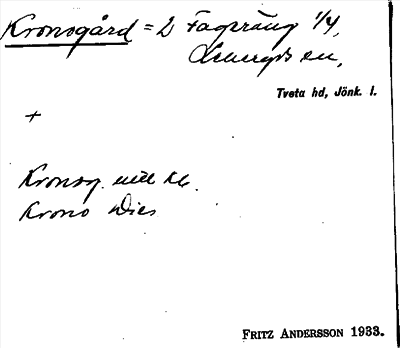 Kronogård = 2 Fageräng 1/4,
sn,
Tveta hd, Jönk. l.
+
Kronog. till kl.
Krono Dies
FRITZ ANDERSSON 1933.